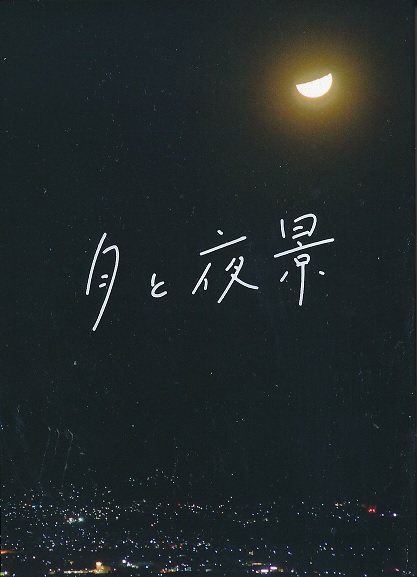 月と夜景